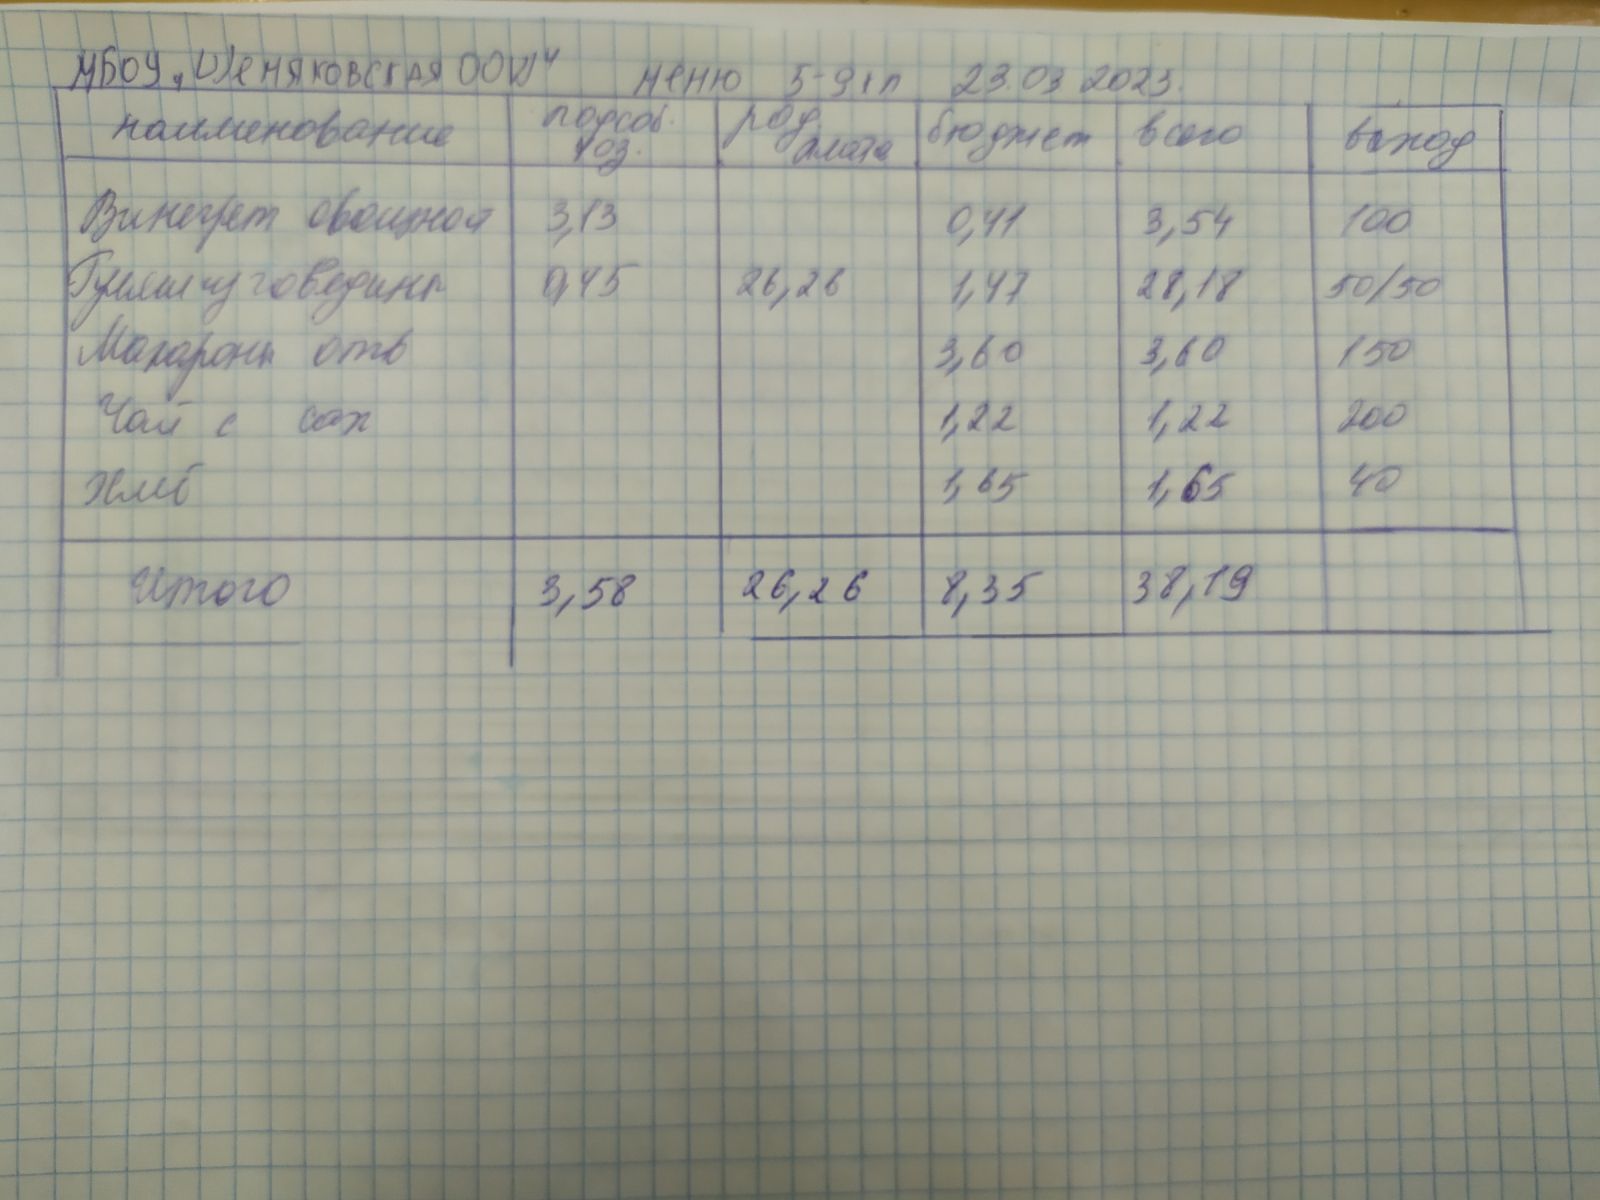 МБОУ „Шемяковская ООШ" меню 5-9кл 23.03 2023.
наименование подсоб. хоз. род плата бюджет всего выход
Винегрет овощной 3,13 0,41 3,54 100
Гуляш из говядины 0,45 26,26 1,47 28,18 50/50
Макароны отв 3,60 3,60 150
Чай с сах 1,22 1,22 200
Хлеб 1,65 1,65 40
Итого 3,58 26,26 8,35 38,19